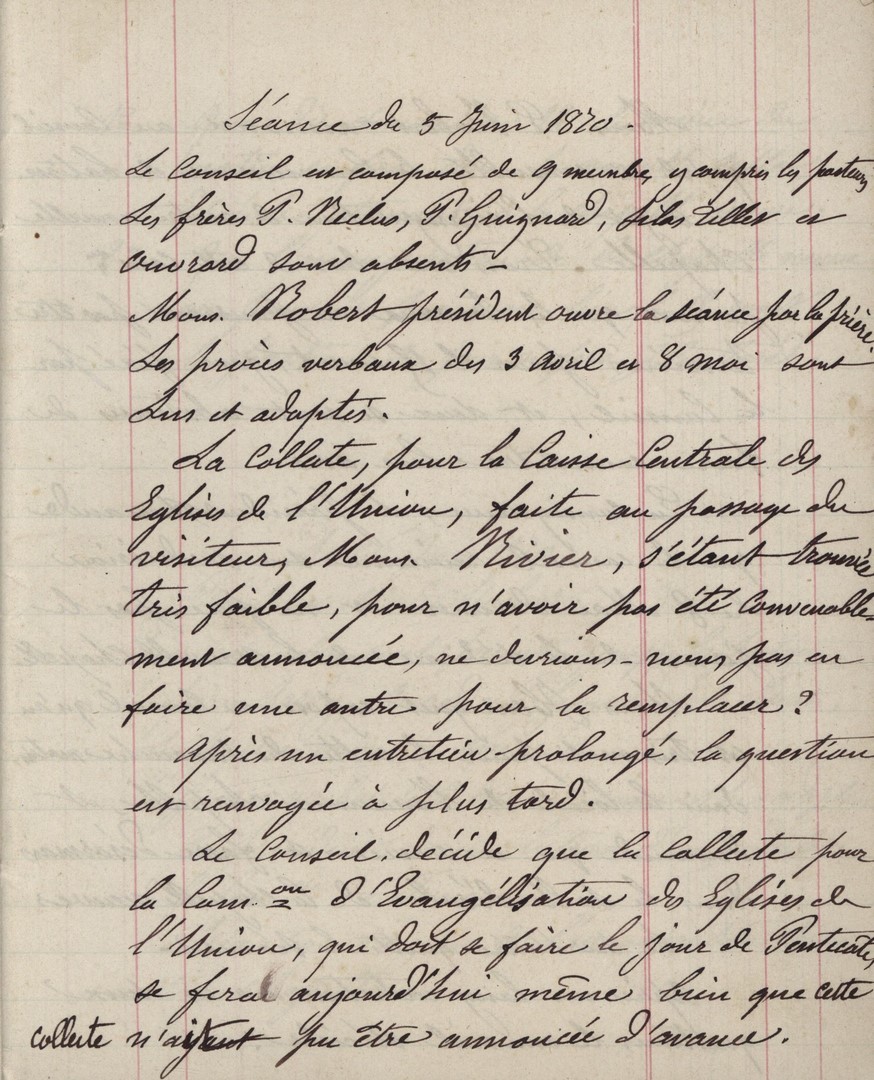 Séance du 5 Juin 1870.
Le Conseil est composé de 9 membres y compris les pasteurs
Les frères P. Reclus, P. Guignard, Silas Tillet et
Ouvrard sont absents –
Mons. Robert président ouvre la séance par la prière.
Les procès verbaux des 3 avril et 8 mai sont
Lus et adoptés.
La Collecte, pour la Caisse Centrale des
Eglises de l'Union, faite au passage du
visiteur, Mons. Rivier, s'étant trouvée
très faible, pour n'avoir pas été convenable-
ment annoncée, ne devrions-nous pas en
faire une autre pour la remplacer ?
Après un entretien prolongé, la question
est renvoyée à plus tard.
Le Conseil décide que la Collecte pour
la Com.on d'Evangélisation des Eglises de
l'Union, qui doit se faire le jour de Pentecôte,
se fera aujourd'hui même bien que cette
collecte n'ait pu être annoncée d'avance.